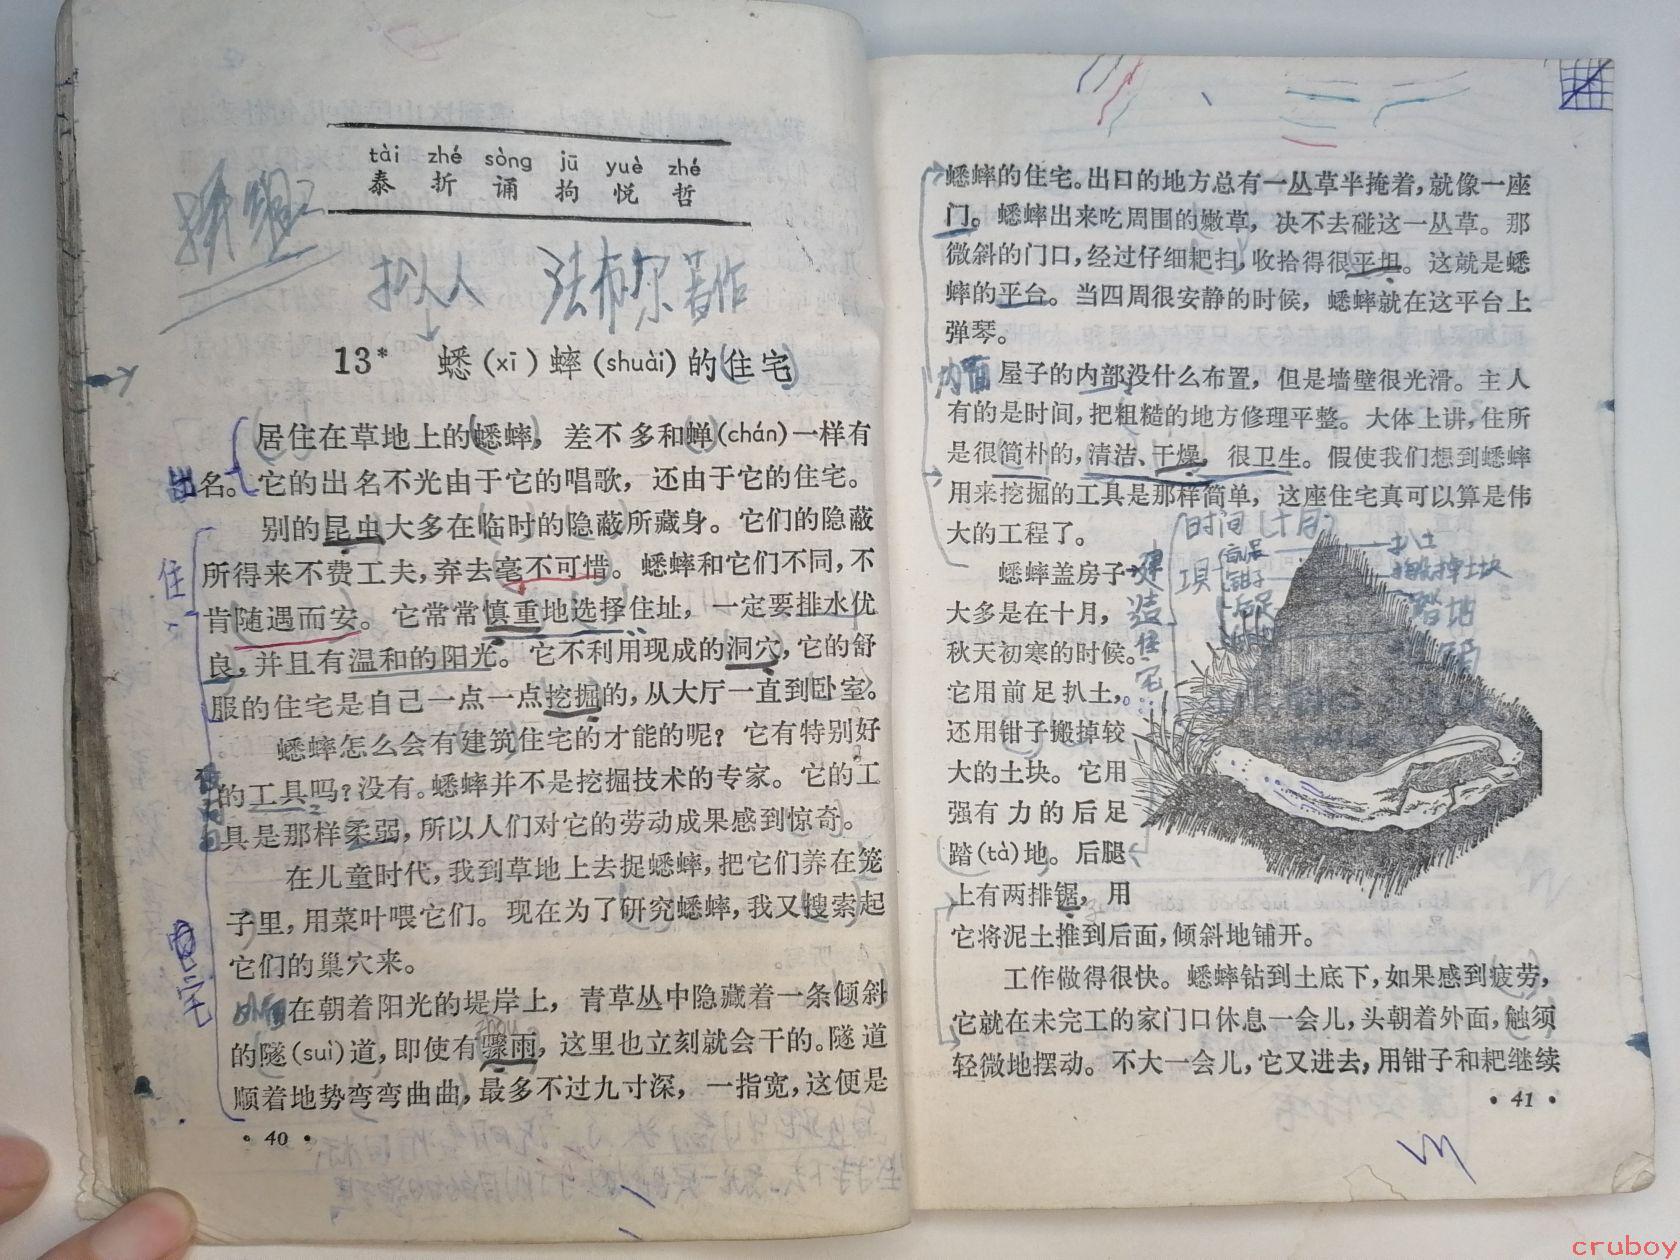 tài zhé sòng jū yuè zhé
泰 折 诵 拘 悦 哲
拟人 法布尔著作
13* 蟋(xī)蟀(shuài)的住宅
居住在草地上的蟋蟀，差不多和蝉(chán)一样有
出名。它的出名不光由于它的唱歌，还由于它的住宅。
别的昆虫大多在临时的隐蔽所藏身。它们的隐蔽
所得来不费工夫，弃去毫不可惜。蟋蟀和它们不同，不
住
肯随遇而安。它常常慎重地选择住址，一定要排水优
良，并且有温和的阳光。它不利用现成的洞穴，它的舒
服的住宅是自己一点一点挖掘的，从大厅一直到卧室。
蟋蟀怎么会有建筑住宅的才能的呢？它有特别好
的工具吗？没有。蟋蟀并不是挖掘技术的专家。它的工
具是那样柔弱，所以人们对它的劳动成果感到惊奇。
在儿童时代，我到草地上去捉蟋蟀，把它们养在笼
子里，用菜叶喂它们。现在为了研究蟋蟀，我又搜索起
它们的巢穴来。
外面在朝着阳光的堤岸上，青草丛中隐藏着一条倾斜
zhòu
的隧(suì)道，即使有骤雨，这里也立刻就会干的。隧道
顺着地势弯弯曲曲，最多不过九寸深，一指宽，这便是
• 40 •
蟋蟀的住宅。出口的地方总有一丛草半掩着，就像一座
门。蟋蟀出来吃周围的嫩草，决不去碰这一丛草。那
微斜的门口，经过仔细耙扫，收拾得很平坦。这就是蟋
蟀的平台。当四周很安静的时候，蟋蟀就在这平台上
弹琴。
内面 屋子的内部没什么布置，但是墙壁很光滑。主人
有的是时间，把粗糙的地方修理平整。大体上讲，住所
是很简朴的，清洁、干燥，很卫生。假使我们想到蟋蟀
用来挖掘的工具是那样简单，这座住宅真可以算是伟
大的工程了。
时间(十月)
扒土
钳子 搬掉土块
踏地
建造住宅
蟋蟀盖房子
大多是在十月，
秋天初寒的时候。
它用前足扒土，
还用钳子搬掉较
大的土块。它用
强有力的后足
踏(tà)地。后腿
上有两排锯，用
它将泥土推到后面，倾斜地铺开。
工作做得很快。蟋蟀钻到土底下，如果感到疲劳，
它就在未完工的家门口休息一会儿，头朝着外面，触须
轻微地摆动。不大一会儿，它又进去，用钳子和耙继续
• 41 •
cruboy